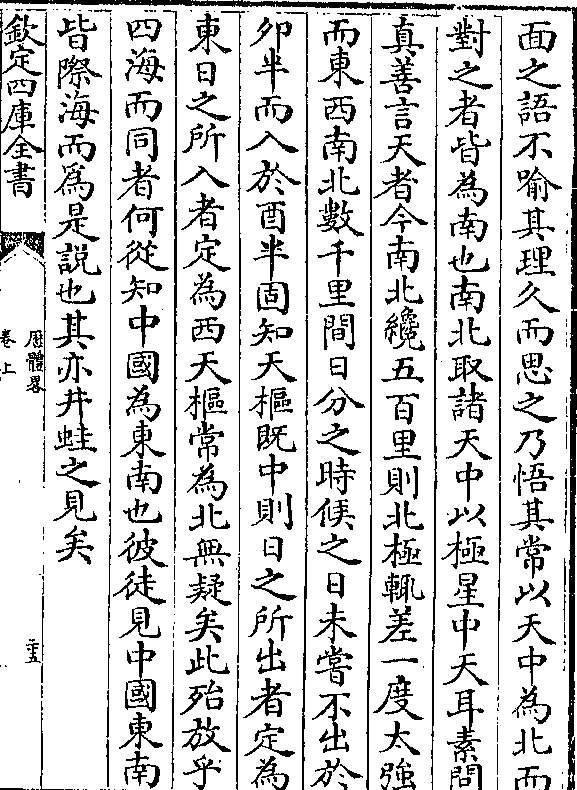 面之語不喻其理久而思之乃悟其常以天中為北而
對之者皆為南也南北取諸天中以極星中天耳素問
真善言天者今南北纔五百里則北極輒差一度太強
而東西南北數千里間日分之時候之日未嘗不出於
卯半而入於酉半固知天樞既中則日之所出者定為
東日之所入者定為西天樞常為北無疑矣此殆放乎
四海而同者何從知中國為東南也彼徒見中國東南
皆際海而為是説也其亦井蛙之見矣
欽定四庫全書
厯體畧
卷上
二十五